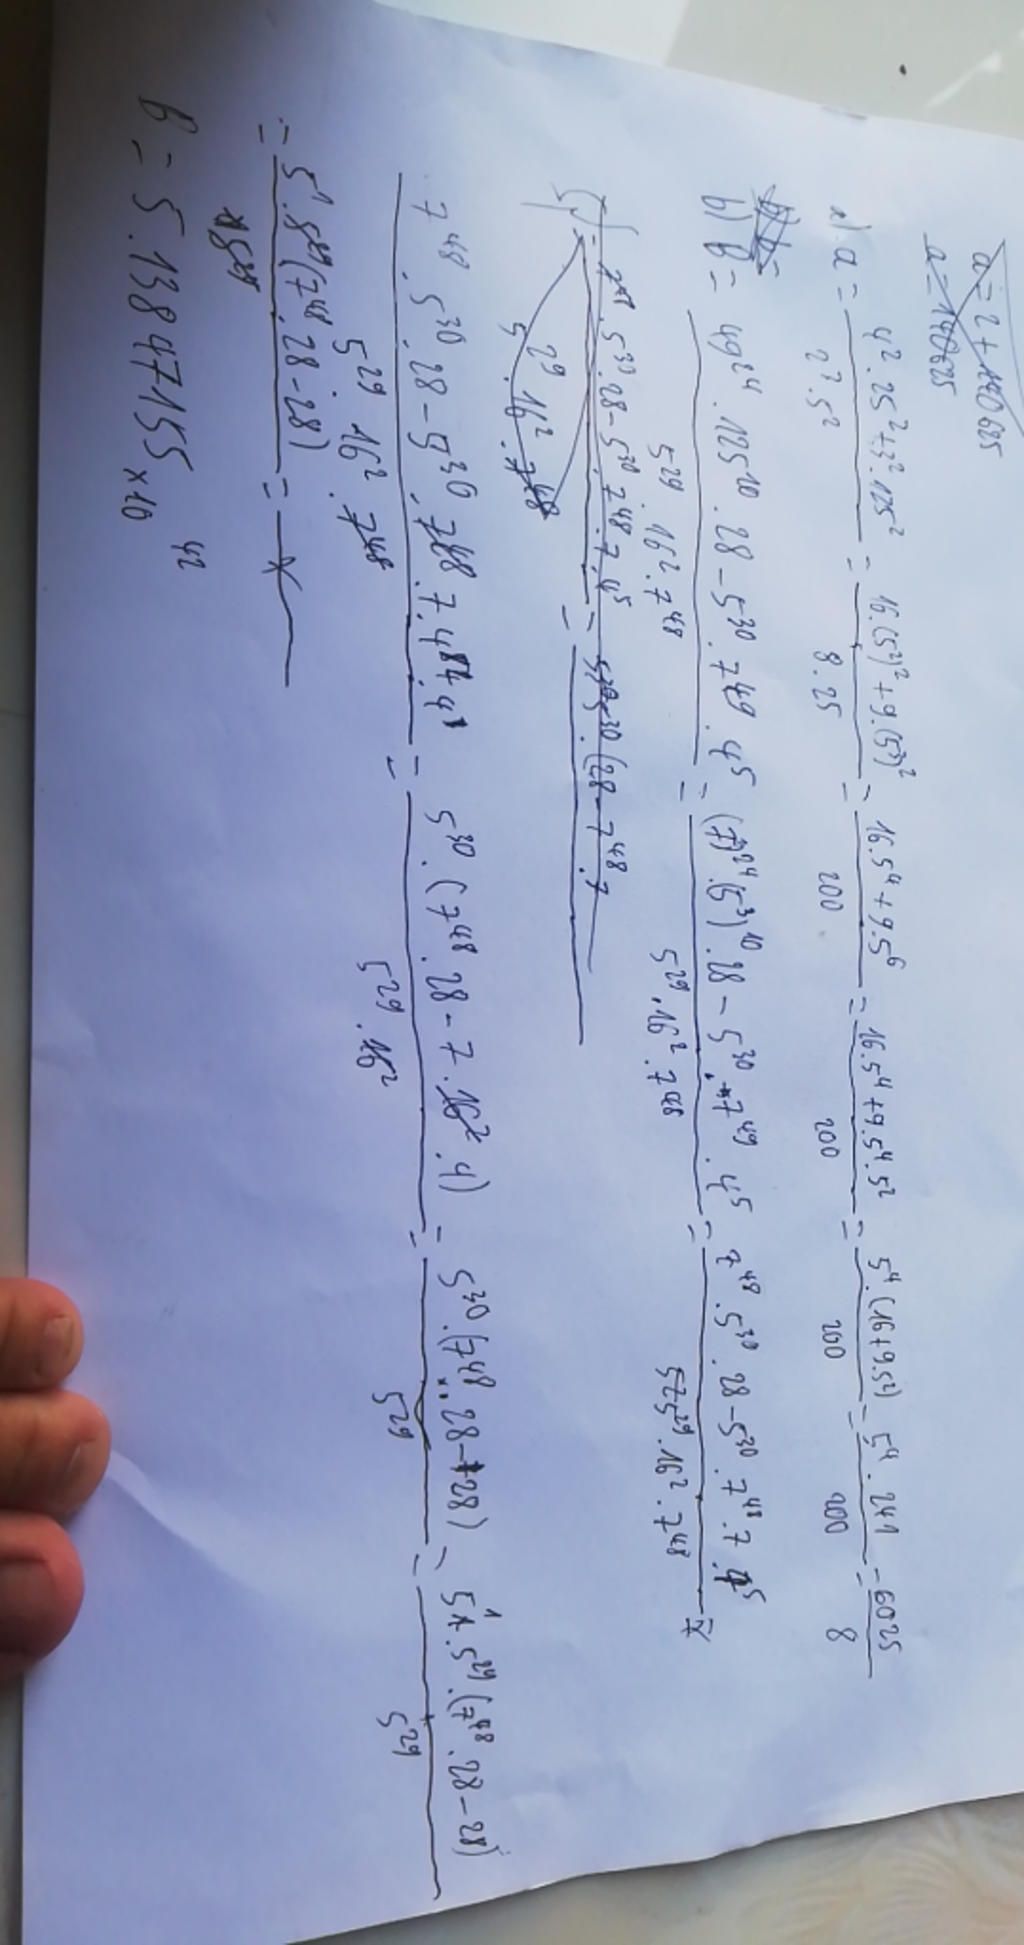 a = 2 + 140625
a = 140625
a) a = (4².25²+3².125²)/(2³.5²) = (16.(5²)²+9.(5³)²)/(8.25) = (16.5⁴+9.5⁶)/200 = (16.5⁴+9.5⁴.5²)/200 = (5⁴.(16+9.5²))/200 = (5⁴.241)/200 = 6025/8
b) B = (49²⁴.125¹⁰.28-5³⁰.7⁴⁹.4⁵)/(5²⁹.16².7⁴⁸) = ((7²)²⁴.(5³)¹⁰.28-5³⁰.7⁴⁹.4⁵)/(5²⁹.16².7⁴⁸) = (7⁴⁸.5³⁰.28-5³⁰.7⁴⁸.7.4⁵)/(5²⁹.16².7⁴⁸) =
= (5³⁰.28-5³⁰.7⁴⁸.7.4⁵)/(5²⁹.16².7⁴⁸) = 5³⁰.(28-7⁴⁸.7
(7⁴⁸.5³⁰.28-5³⁰.7⁴⁸.7.4⁴.4¹)/(5²⁹.16².7⁴⁸) = (5³⁰.(7⁴⁸.28-7.16².4))/(5²⁹.16²) = (5³⁰.(7⁴⁸.28-28))/5²⁹ = (5¹.5²⁹.(7⁴⁸.28-28))/5²⁹
= (5¹.5²⁹(7⁴⁸.28-28))/5²⁹ =
B = 5.13847155×10⁴²